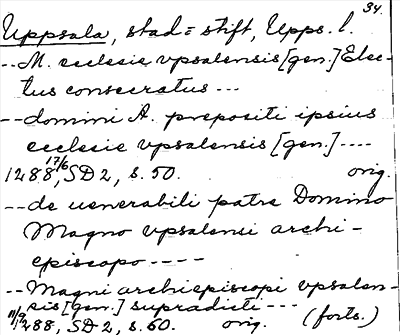 34.
Uppsala, stad = stift, Upps. l.
-- M. ecclesie vpsalensis [gen.] Elec-
tus consecratus ---
-- domini A. prepositi ipsius
ecclesie vpsalensis [gen.] ----
1288 17/6, SD 2, s. 50. orig.
-- de uenerabili patre Domino
Magno vpsalensi archi-
episcopo ----
-- Magni archiepiscopi vpsalen-
sis [gen.] supradicti ---
11/9 1288, SD 2, s. 60. orig. (forts.)